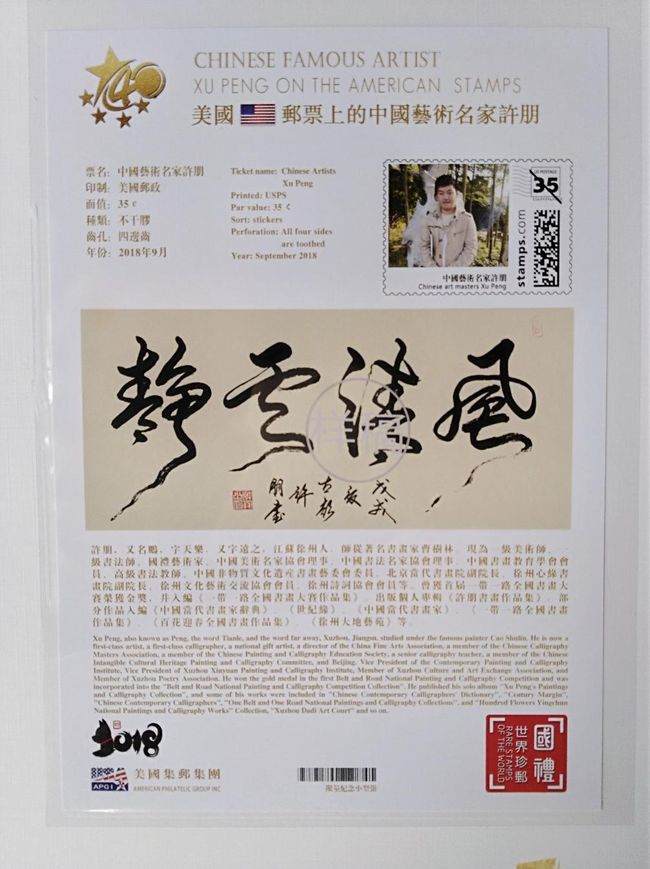 CHINESE FAMOUS ARTIST
XU PENG ON THE AMERICAN STAMPS
美國 郵票上的中國藝術名家許朋
票名：中國藝術名家許朋
印制：美國郵政
面值：35￠
種類：不干膠
齒孔：四邊齒
年份：2018年9月
Ticket name: Chinese Artists
Xu Peng
Printed: USPS
Par value: 35 ¢
Sort: stickers
Perforation: All four sides
are toothed
Year: September 2018
US POSTAGE
35
stamps.com
中國藝術名家許朋
Chinese art masters Xu Peng
風清雲靜
戊戌
夏
古彭
許
朋書
样稿
許朋，又名鵬，字天樂，又字遠之，江蘇徐州人，師從著名書畫家曹樹林。現為一級美術師、一
級書法師、國禮藝術家、中國美術名家協會理事、中國書法名家協會理事、中國書畫教育學會會
員、高級書法教師、中國非物質文化遺産書畫藝委會委員、北京當代書畫院副院長、徐州心緣書
畫院副院長、徐州文化藝術交流協會會員、徐州詩詞協會會員等。曾獲首届一帶一路全國書畫大
賽榮獲金獎，并入編《一帶一路全國書畫大賽作品集》，出版個人專輯《許朋書畫作品集》，部
分作品入編《中國當代書畫家辭典》、《世紀緣》、《中國當代書畫家》、《一帶一路全國書畫
作品集》、《百花迎春全國書畫作品集》、《徐州大地藝苑》等。
Xu Peng, also known as Peng, the word Tianle, and the word far away, Xuzhou, Jiangsu, studied under the famous painter Cao Shulin. He is now a
first-class artist, a first-class calligrapher, a national gift artist, a director of the China Fine Arts Association, a member of the Chinese Calligraphy
Masters Association, a member of the Chinese Painting and Calligraphy Education Society, a senior calligraphy teacher, a member of the Chinese
Intangible Cultural Heritage Painting and Calligraphy Committee, and Beijing. Vice President of the Contemporary Painting and Calligraphy
Institute, Vice President of Xuzhou Xinyuan Painting and Calligraphy Institute, Member of Xuzhou Culture and Art Exchange Association, and
Member of Xuzhou Poetry Association. He won the gold medal in the first Belt and Road National Painting and Calligraphy Competition and was
incorporated into the "Belt and Road National Painting and Calligraphy Competition Collection". He published his solo album "Xu Peng's Paintings
and Calligraphy Collection", and some of his works were included in "Chinese Contemporary Calligraphers' Dictionary", "Century Margin",
"Chinese Contemporary Calligraphers", "One Belt and One Road National Paintings and Calligraphy Collections", and "Hundred Flowers Yingchun
National Paintings and Calligraphy Works" Collection", "Xuzhou Dadi Art Court" and so on.
2018
APGI
美國集郵集團
AMERICAN PHILATELIC GROUP INC
限量紀念小型張
國禮
世界珍郵
RARE STAMPS
OF THE WORLD